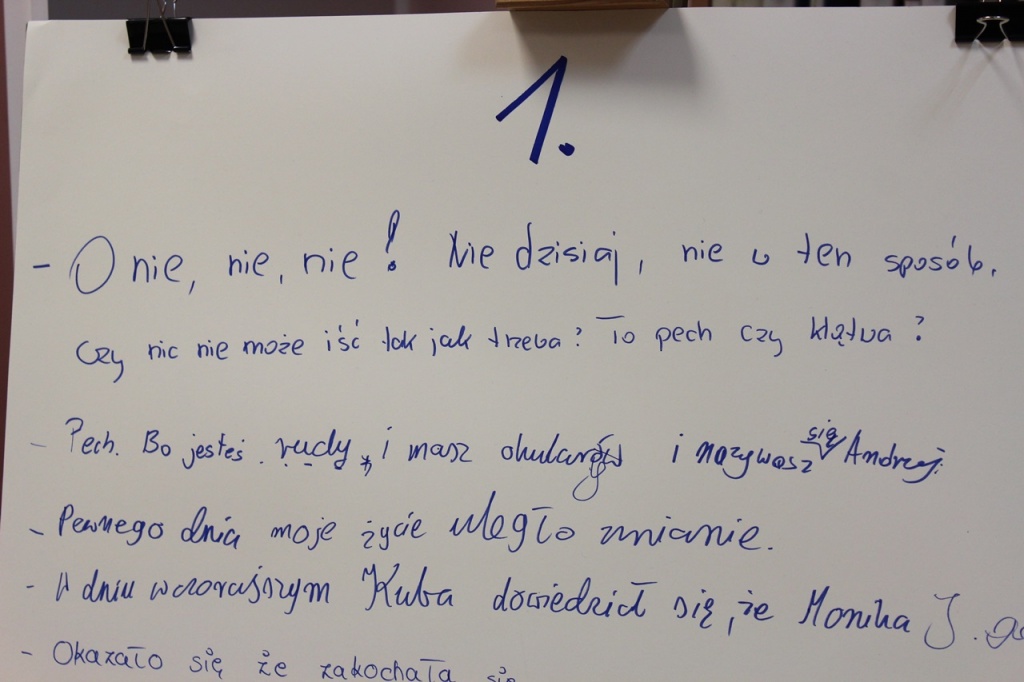 1.
- O nie, nie, nie! Nie dzisiaj, nie w ten sposób.
Czy nic nie może iść tak jak trzeba? To pech czy klątwa?
- Pech. Bo jesteś rudy, i masz okularów i nazywasz się Andrzej.
- Pewnego dnia moje życie uległo zmianie.
- W dniu wczorajszym Kuba dowiedział się, że Monika J.
- Okazało się że zakochała się